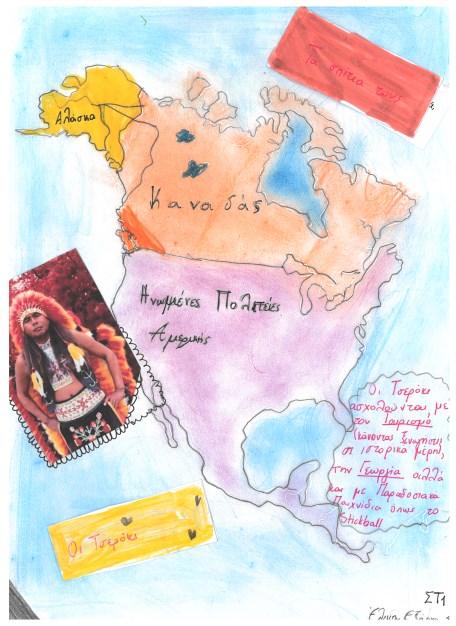 Τα σπίτια τους
Αλάσκα
Καναδάς
Ηνωμένες Πολιτείες
Αμερικής
Οι Τσερόκι
ασχολούνται με
τον Τουρισμό
(κάνοντας ξενάγηση
σε ιστορικά μέρη),
την Γεωργία αλλά
και με Παραδοσιακά
Παιχνίδια όπως το
Stickball
Οι Τσερόκι
ΣΤ1
Ελένη